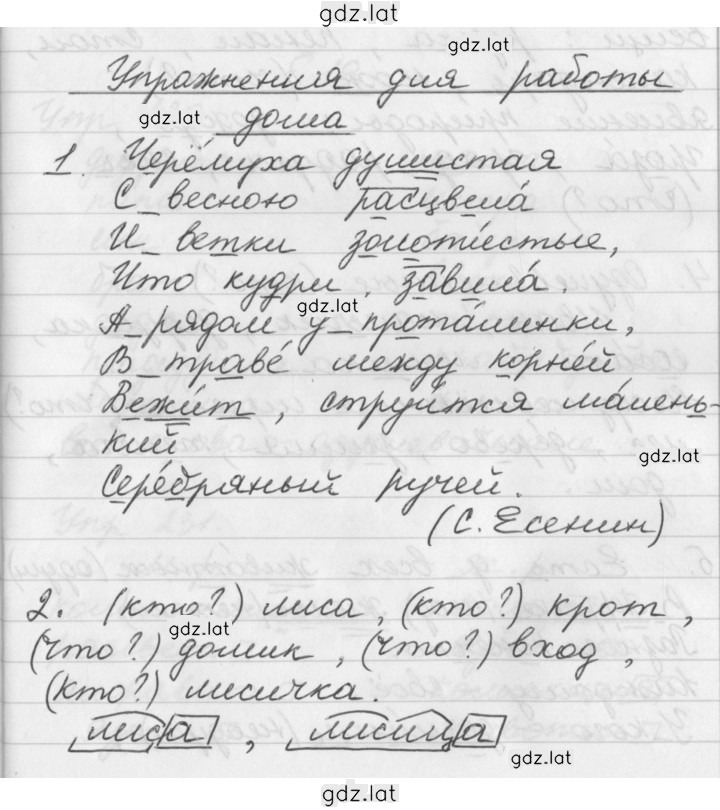 gdz.lat
gdz.lat
Упражнения для работы
gdz.lat
дома
1. Черёмуха душистая
С весною расцвела́
И ветки золоти́стые,
Что кудри, завила́.
gdz.lat
А рядом у прота́линки,
В траве́ между корне́й
Бежи́т, струи́тся ма́лень-
кий
gdz.lat
Сере́бряный ручей.
(С. Есенин)
2. (кто?) лиса, (кто?) крот,
gdz.lat
(что?) домик, (что?) вход,
(кто?) лисичка.
лиса, лисица
gdz.lat
gdz.lat